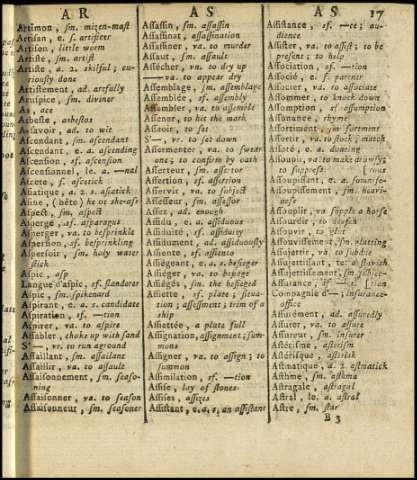 AR
AS
AS
17
Artimon, sm. mizen-mast
Artisan, e. s. artificer
Artison, little worm
Artiste, sm. artist
Artiste, a. 2. skilful; cu-
riously done
Artistement, ad. artfully
Aruspice, sm. diviner
As, ace
Asbeste, asbestos
Ascavoir, ad. to wit
Ascendant, sm. ascendant
Ascendant, e. a. ascending
Ascension, sf. ascension
Ascensionnel, le. a. —nal
Ascete, s. ascetick
Asiatique, a. 2. asiatick
Asine, (bête) he or she-ass
Aspect, sm. aspect
Asperge, sf. asparagus
Asperger, va. to besprinkle
Aspersion, sf. besprinkling
Aspersoir, sm. holy water
stick
Aspic, asp
Langue d'aspic, sf. slanderer
Aspic, sm. spikenard
Aspirant, e. a. s. candidate
Aspiration, sf. —tion
Aspirer, va. to aspire
Assabler, choke up with sand
S'—, vr. to run aground
Assaillant, sm. assailant
Assaillir, va. to assault
Assaisonnement, sm. seaso-
ning
Assaisonner, va. to season
Assaisonneur, sm. seasoner
Assassin, sm. assassin
Assassinat, assassination
Assassiner, va. to murder
Assaut, sm. assault
Assécher, vn. to dry up
—va. to appear dry
Assemblage, sm. assemblage
Assemblée, sf. assembly
Assembler, va. to assemble
Assener, to hit the mark
Asseoir, to set
S'—, vr. to set down
Assermenter, va. to swear
one; to confirm by oath
Asserteur, sm. assertor
Assertion, sf. assertion
Asservir, va. to subject
Assesseur, sm. assessor
Assez, ad. enough
Assidu, e. a. assiduous
Assiduité, sf. assiduity
Assidument, ad. assiduously
Assiente, sf. assiento
Assiégeant, e. a. s. besieger
Assiéger, va. to besiege
Assiégés, sm. the besieged
Assiette, sf. plate; situa-
tion; assessment; trim of a
ship
Assiettée, a plate full
Assignation, assignment; sum-
mons
Assigner, va. to assign; to
summon
Assimilation, sf. —tion
Assise, lay of stones
Assises, assizes
Assistant, e. a. s. an assistant
Assistance, sf. —ce; au-
dience
Assister, va. to assist; to be
present; to help
Association, sf. —tion
Associé, e. s. partner
Associer, va. to associate
Assommer, to knock down
Assomption, sf. assumption
Assonance, rhyme
Assortiment, sm. sortment
Assortir, va. to stock; match
Assoté, e. a. doating
Assoupir, va. to make drowsy;
to suppress
Assoupissant, e. a.
Assoupissement, sm. heavi-
ness
Assouplir, va. supple a horse
Assourdir, to deafen
Assouvir, to glut
Assouvissement, sm. glutting
Assujettir, va. to subdue
Assujettissant, te. a. slavish
Assujettissement, sm.
Assurance, sf. —ce
Compagnie d'—, insurance-
office
Assurément, ad. assuredly
Assurer, va. to assure
Assureur, sm. insurer
Astérisme, asterism
Astérisque, asterisk
Astmatique, a. 2. astmatick
Asthme, sm. asthma
Astragale, astragal
Astral, le. a. astral
Astre, sm. star
B 3